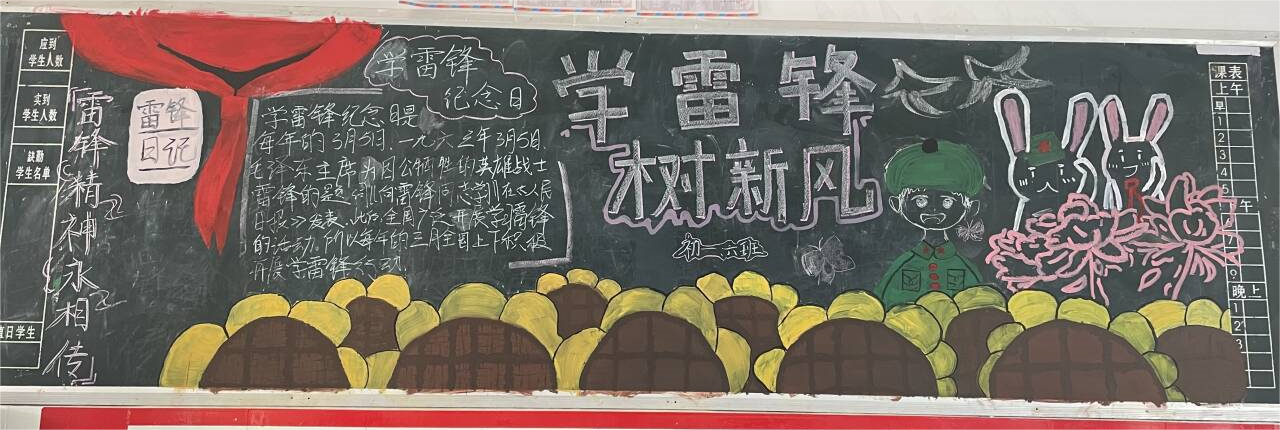 应到
学生人数
实到
学生人数
缺勤
学生名单
值日学生
雷锋精神永相传
雷锋
日记
学雷锋
纪念日
学雷锋纪念日是
每年的3月5日.一九六三年3月5日.
毛泽东主席为因公牺牲的英雄战士
雷锋的题词《向雷锋同志学》在《人民
日报》发表.此后全国广泛开展学雷锋
的活动.所以每年的三月全国上下积极
开展学雷锋活动.
学雷锋
树新风
初一六班
课表
上午
早
1
2
3
4
5
午
6
7
晚上
1
2
3